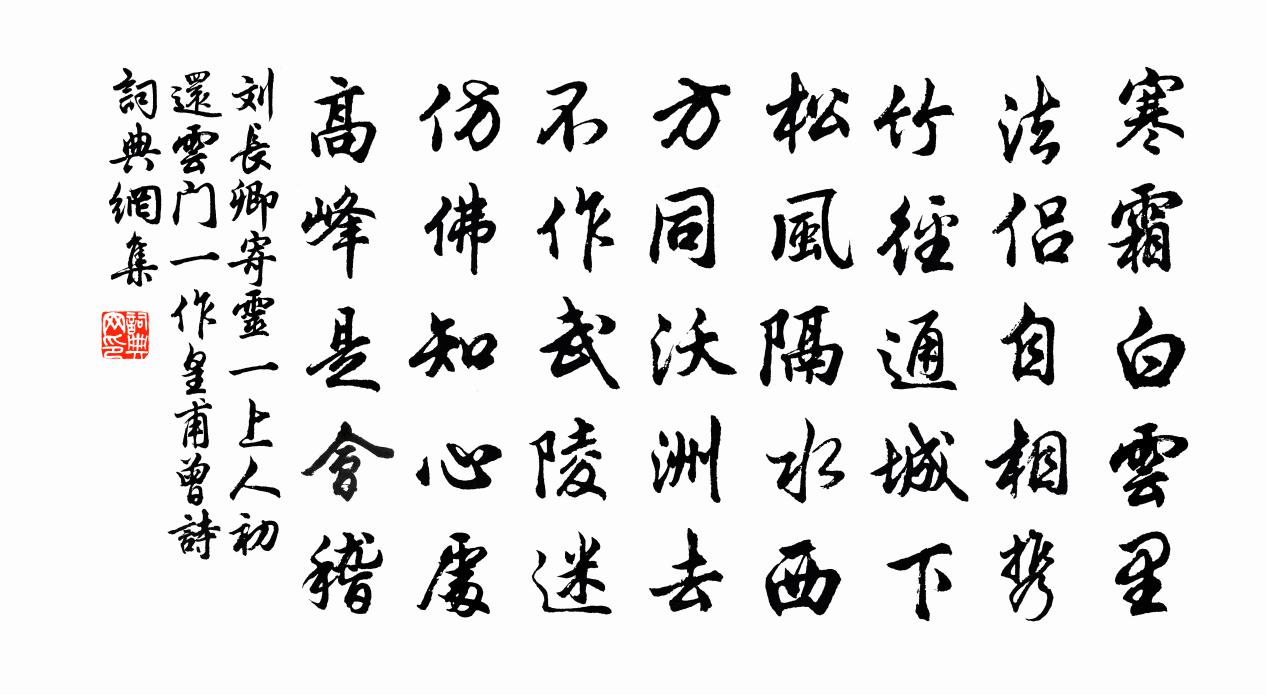 寒霜白雲里
法侣自相携
竹徑通城下
松風隔水西
方同沃洲去
不作武陵迷
仿佛知心處
高峰是會稽
刘長卿寄靈一上人初
還雲门一作皇甫曾詩
詞典網集
詞典网印